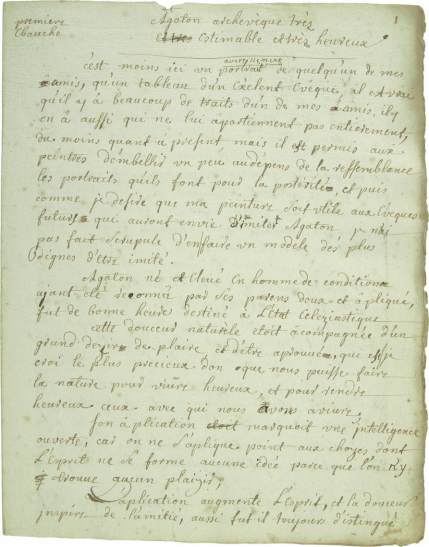 premiere
Ebauche
1
Agaton archevêque très
et tres estimable et très heureux
c'est moins icí un portrait de quelqu'un de mes
amis, qu'un tableau d'un Exelent Eveque, il est vrai
qu'il y à beaucoup de traits d'un de mes amis, il y
en à aussi qui ne lui apartiennent pas entierement,
du moins quant à présent mais il est permis aux
peintres d'embélir un peu audépens de la ressemblance
les portraits qu'ils font pour la postérité, et puis
comme je desire que ma peinture soit utile aux Eveques
futurs qui auront envie d'imiter Agaton, je n'ai
pas fait scrupule d'en faire un modèle des plus
dignes d'etre imité.
Agaton né et elevé en homme de condition
ayant été reconnu par ses parens doux et apliqué,
fut de bonne heure destiné à l'Etat Ecleziastique
cette douceur naturelle etoit acompagnée d'un
grand dezir de plaire et d'etre aprouvé, que je
croi le plus precieux don que nous puisse faire
la nature pour vivre heureux, et pour rendre
heureux ceux avec qui nous avons a vivre
son aplication marquoit une intelligence
ouverte, car on ne s'aplique point aux chozes dont
l'Esprit ne se forme aucune idée parce que l'on n'y
trouve aucun plaizir,
L'aplication augmente l'Esprit, et la douceur
inspire de l'amitié, aussi fut il toujours distingué